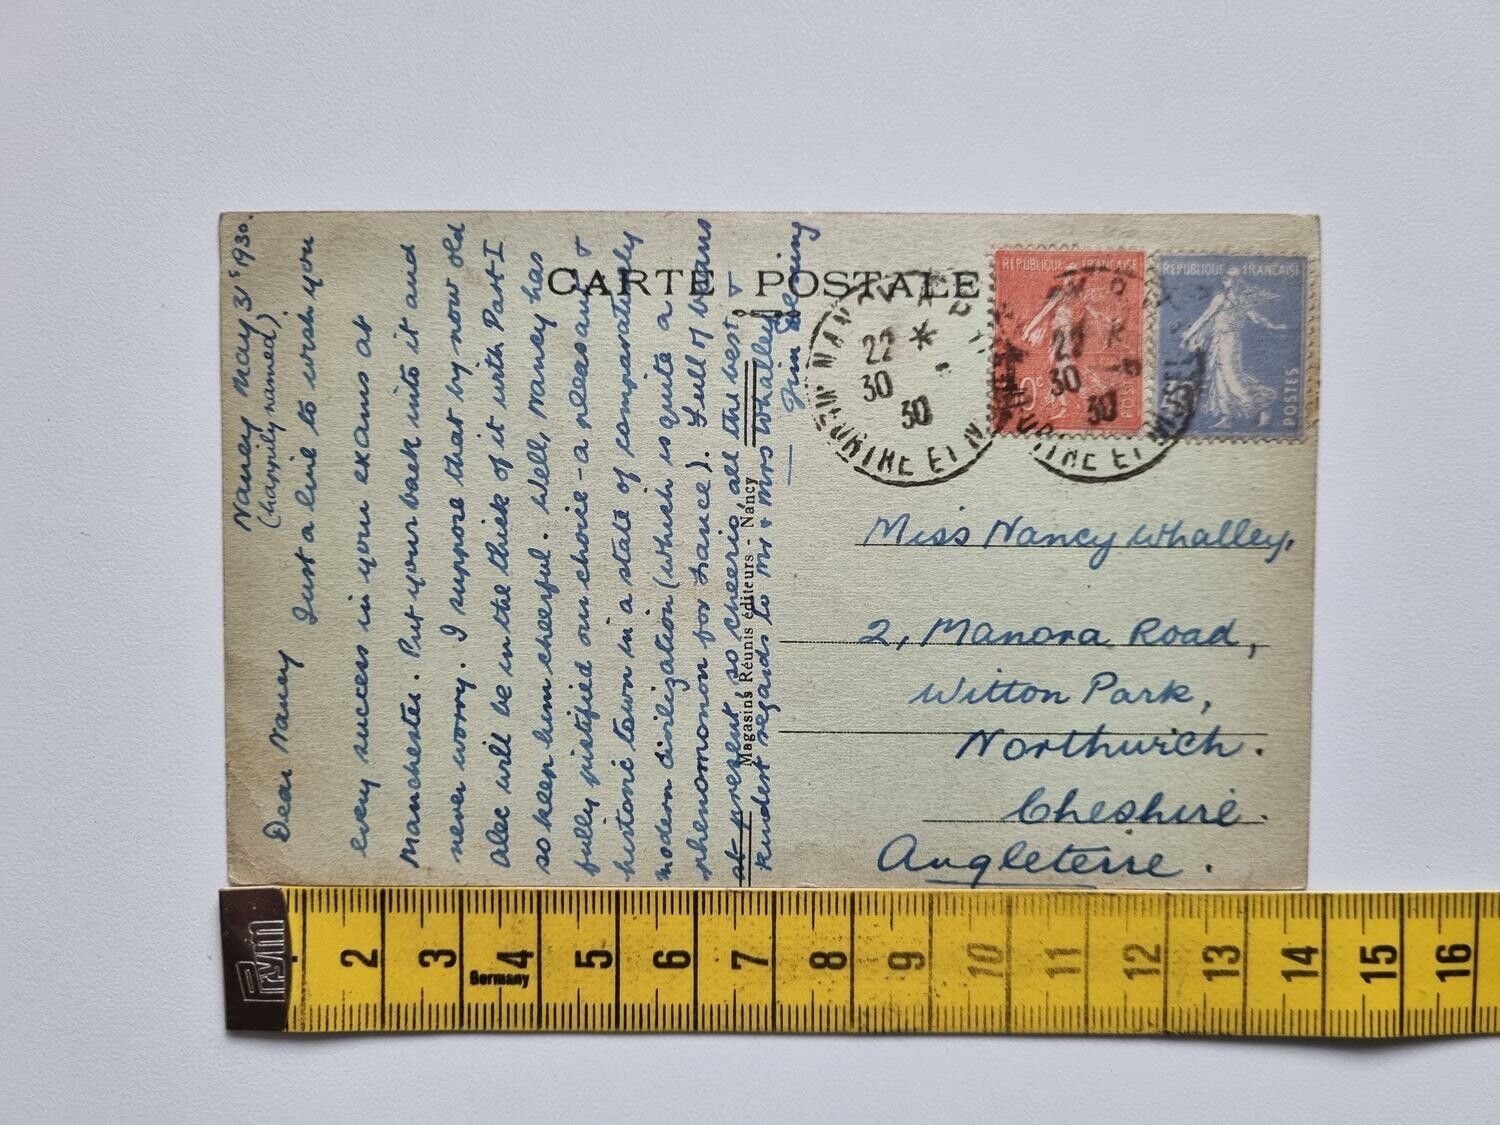 Nancy May 31st 1930.
(happily named)
Dear Nancy
Just a line to wish you
every success in your exams at
Manchester. Put your back into it and
never worry. I suppose that by now old
Alec will be in the thick of it with Part I
so keep him cheerful. Well, Nancy has
fully justified our choice - a pleasant &
historic town in a state of comparatively
modern civilization (which is quite a
phenomonon for France). Full of beans
at present, so cheerio, all the best &
kindest regards to Mr & Mrs Whalley
Jim
CARTE POSTALE
Magasins Réunis éditeurs - Nancy
Miss Nancy Whalley,
2, Manora Road,
Witton Park,
Northwich.
Cheshire.
Angleterre.
REPUBLIQUE FRANÇAISE
POSTES
REPUBLIQUE FRANÇAISE
POSTES
22 *
30
30
22
30
30
MEURTHE ET M
Prym
2 3 4 5 6 7 8 9 10 11 12 13 14 15 16
Germany